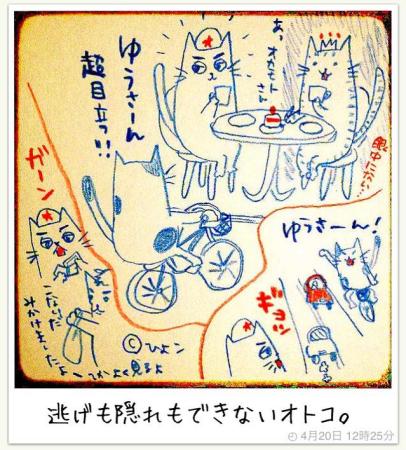 あっ
オカモト
さん
ゆうさーん
超目立つ!!
ガーン
ゆうさーん!
ギョッ
こないだ
みかけましたよー
てかよく見るよ
©ひよこ
逃げも隠れもできないオトコ。
4月20日 12時25分